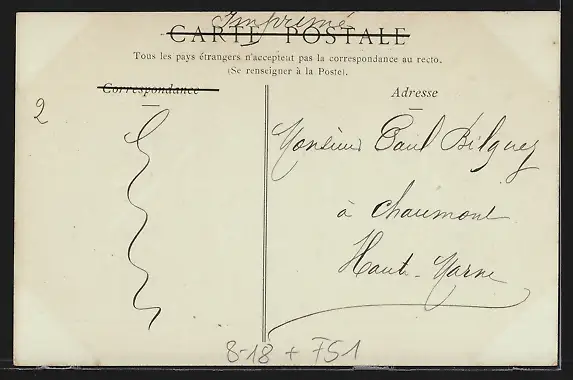 Imprimé
CARTE POSTALE
Tous les pays étrangers n'acceptent pas la correspondance au recto.
(Se renseigner à la Poste).
Correspondance
Adresse
2
Monsieur Paul Bilquez
à Chaumont
Haute-Marne
8-18 + FS1